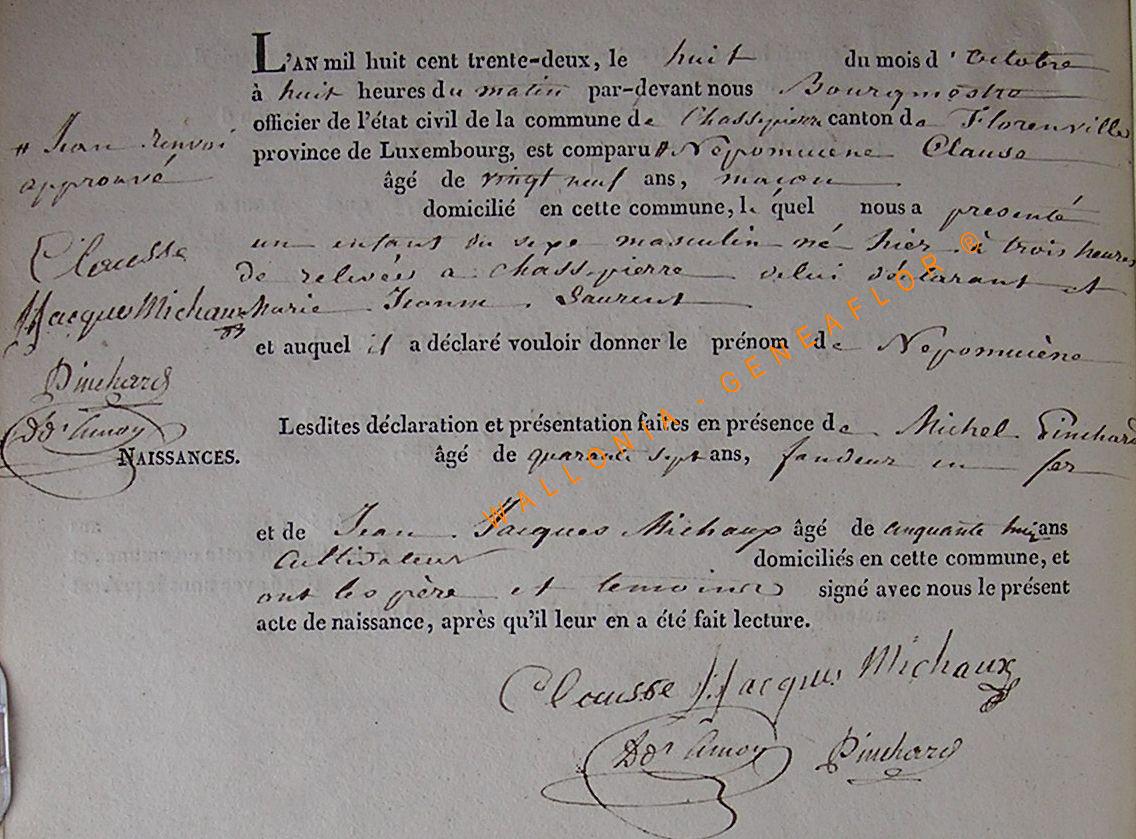 L'AN mil huit cent trente-deux, le huit du mois d'Octobre
à huit heures du matin par-devant nous Bourgmestre
officier de l'état civil de la commune de Chassepierre canton de Florenville
province de Luxembourg, est comparu # Népomucène Clause
âgé de vingt neuf ans, maçon
domicilié en cette commune, le quel nous a presenté
un enfant du sexe masculin né hier à trois heures
de relevée a Chassepierre de lui déclarant et
Marie Jeanne Laurent
et auquel il a déclaré vouloir donner le prénom de Népomucène
Lesdites déclaration et présentation faites en présence de Michel Pinchard
âgé de quarante sept ans, fondeur en fer
et de Jean Jacques Michaux âgé de cinquante huit ans
Cultivateur domiciliés en cette commune, et
ont les père et temoins signé avec nous le présent
acte de naissance, après qu'il leur en a été fait lecture.
Clausse JJacques Michaux
Pinchard
# Jean renvoi
approuvé
Clausse
JJacques Michaux
Pinchard
NAISSANCES.
WALLONIA - GENEAFLOR ®